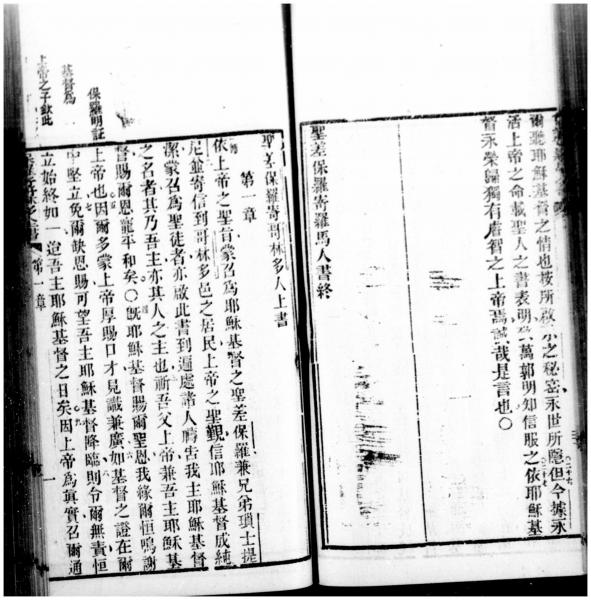 爾聽耶穌基督之情也按所啟示之秘密永世所隱但今據永
活上帝之命載聖人之書表明與萬郭明知信服之依耶穌基
督永榮歸獨有睿智之上帝焉誠哉是言也〇
聖差保羅寄羅馬人書終
聖差保羅寄哥林多人上書
第一章
依上帝之聖旨蒙召為耶穌基督之聖差保羅兼兄弟瑣士提
尼並寄信到哥林多邑之居民上帝之聖觀信耶穌基督成純
潔蒙召為聖徒者亦啟此書到遍處諸人禱告我主耶穌基督
之名者其乃吾主亦其人之主也祈吾父上帝兼吾主耶穌基
督賜爾恩寵平和矣〇旣耶穌基督賜爾聖恩我緣爾恒鳴謝
上帝也因爾多蒙上帝厚賜口才見識兼廣如基督之證在爾
中堅立免爾缺恩賜可望吾主耶穌基督降臨則令爾無責恒
立始終如一迨吾主耶穌基督之日矣因上帝為眞實召爾通
保羅明証
基督為
上帝之子欽此
第一章
一